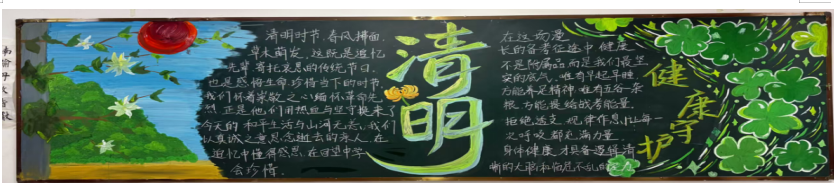 清明时节,春风拂面,
草木萌发,这既是追忆
先辈、寄托哀思的传统节日,
也是感悟生命、珍惜当下的时节
我们怀着崇敬之心缅怀革命先
烈,正是他们用热血与坚守换来了
今天的和平生活与山河无恙,我们
以真诚之意思念逝去的亲人,在
追忆中懂得感恩,在回望中学
会珍惜.
清明
在这场漫
长的备考征途中,健康
不是附属品而是我们最坚
实的底气.唯有早起早睡,
方能养足精神,唯有五谷杂
粮,方能提给战考能量.
拒绝透支,规律作息,让每一
次呼吸都充满力量.
身体健康,才具备逻辑清
晰的大脑和临危不乱的定力
健康守护